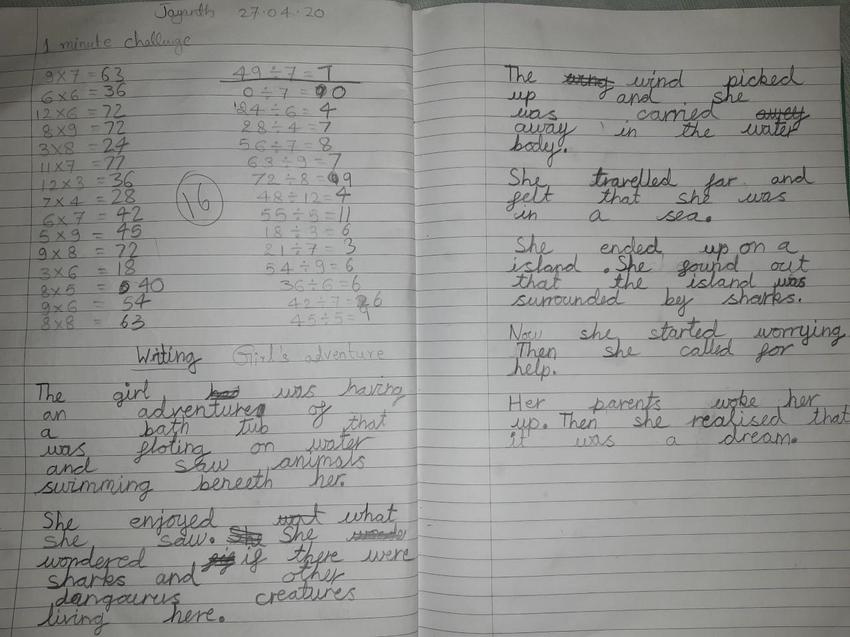 Jayanth 27.04.20
1 minute challenge
9 x 7 = 63
6 x 6 = 36
12 x 6 = 72
8 x 9 = 72
3 x 8 = 24
11 x 7 = 77
12 x 3 = 36
7 x 4 = 28
6 x 7 = 42
5 x 9 = 45
9 x 8 = 72
3 x 6 = 18
8 x 5 = 40
9 x 6 = 54
8 x 8 = 63
16
49 ÷ 7 = 7
0 ÷ 7 = 0
24 ÷ 6 = 4
28 ÷ 4 = 7
56 ÷ 7 = 8
63 ÷ 9 = 7
72 ÷ 8 = 9
48 ÷ 12 = 4
55 ÷ 5 = 11
18 ÷ 3 = 6
21 ÷ 7 = 3
54 ÷ 9 = 6
36 ÷ 6 = 6
42 ÷ 7 = 6
45 ÷ 5 = 9
Writing Girl's adventure
The girl was having
an adventure of
a bath tub that
was floting on water
and saw animals
swimming beneeth her.
She enjoyed what
she saw. She
wondered if there were
sharks and other
dangourus creatures
living here.
The wind picked
up and she
was carried
away in the water
body.
She travelled far and
felt that she was
in a sea.
She ended up on a
island. She found out
that the island was
surrounded by sharks.
Now she started worrying
Then she called for
help.
Her parents woke her
up. Then she realised that
it was a dream.